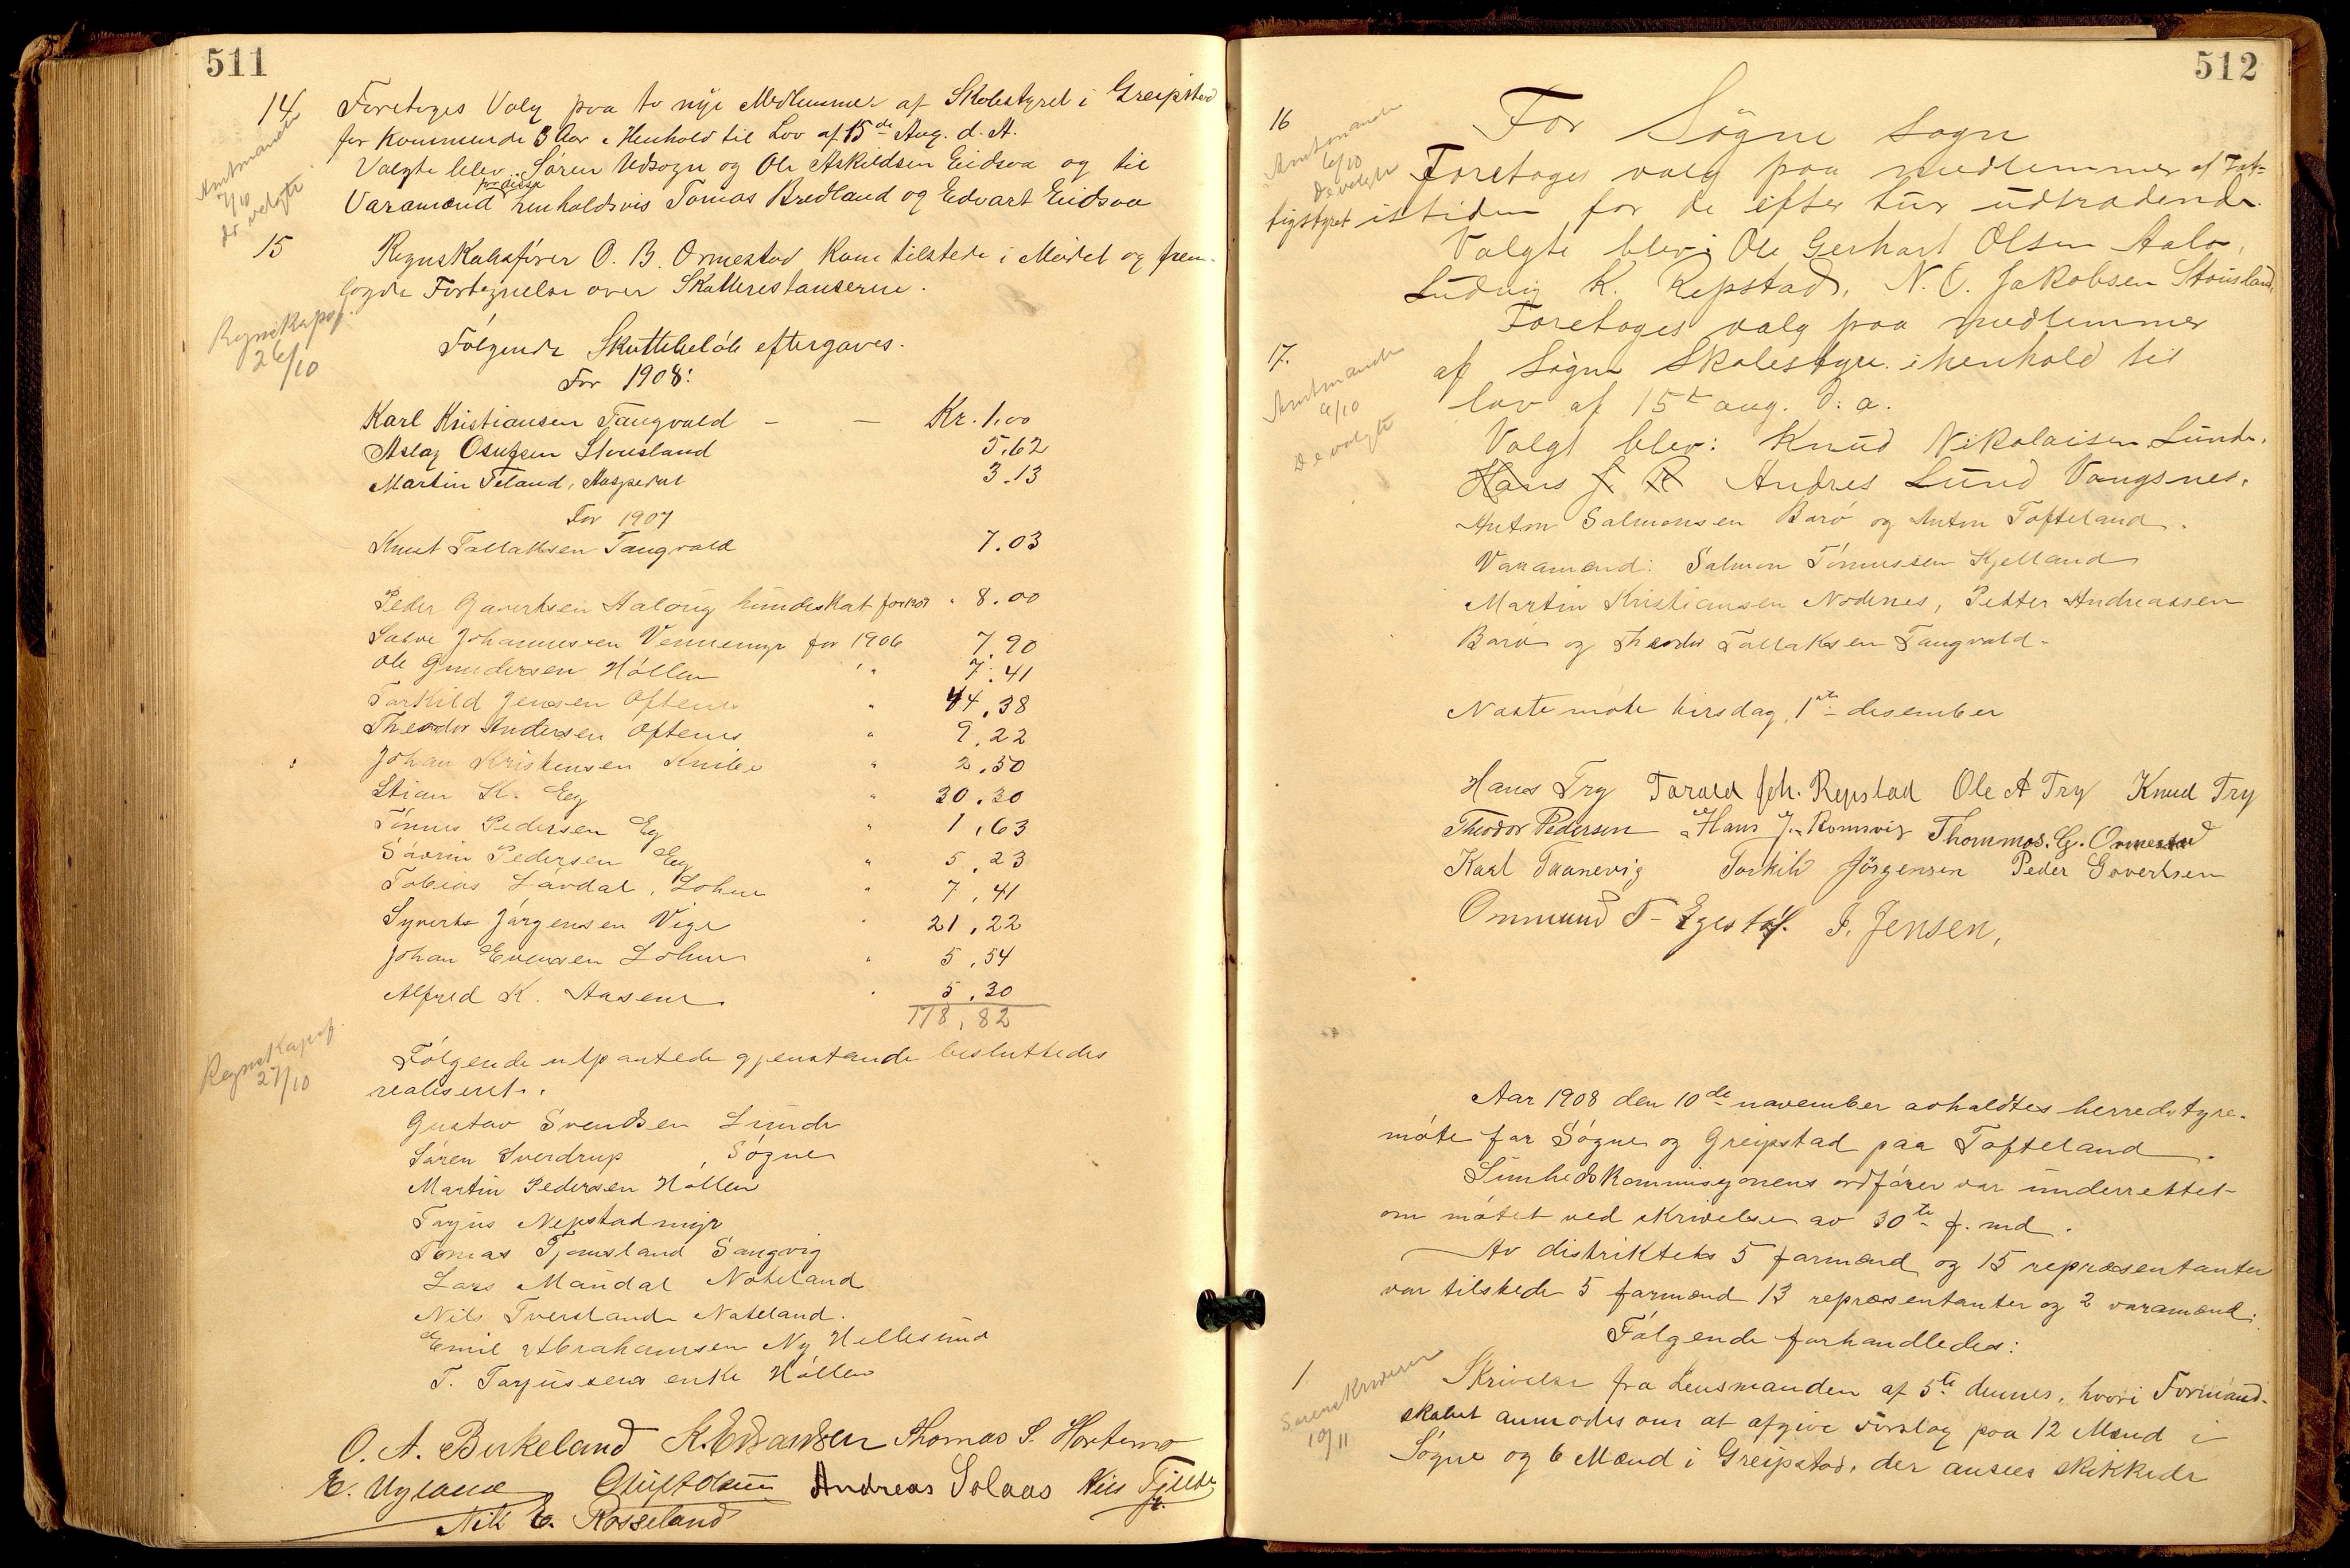 511
14 Foretoges Valg paa to nye Medlemmer af Skolestyret i Greipstad
for kommende 3 Aar i Henhold til Lov af 15de Aug. d. A.
Amtmanden
7/10
de valgte
Valgte blev: Søren Udsogn og Ole Askildsen Eidsaa og til
Varamænd for disse henholdsvis Tomas Bredland og Edvart Eidsaa
15 Regnskabsfører O. B. Ormestad kom tilstede i Mødet og frem-
lagde Fortegnelse over Skatterestanserne.
Regnskapsf.
26/10
Følgende Skattebeløb eftergaves.
For 1908:
Karl Kristiansen Tangvald – – Kr. 1.00
Aslag Osufsen Stousland 5.62
Martin Føland, 3.13
For 1907
Knut Tallaksen Tangvald 7.03
Peder Govertsen Aalorig hundeskat for 1907 " 8.00
Salve Johannessen Vennemyr for 1906 7.90
Ole Gundersen Høllen " 7.41
Torkild Jensen Oftenes " 44.38
Theodor Andersen Oftenes " 9.22
Johan Kristensen Knibe " 2.50
Stian K. Eeg " 30.30
Tønnes Pedersen Eg " 1,63
Søvrin Pedersen Eeg " 5.23
Tobias Løvdal, Lohne " 7,41
Syvert Jørgensen Vige " 21,22
Johan Evensen Lohne " 5,54
Alfred K. Aasene " 5.30
178,82
Følgende utpantede gjenstande besluttedes
realiseret.
Regnskapsf.
27/10
Gustav Svendsen Lunde
Søren Sverdrup, Søgne
Martin Pedersen Høllen
Tarjus Repstadmyr
Tomas Tjomsland Sangvig
Lars Mandal Noteland
Nils Tverstand Noteland.
Emil Abrahamsen Ny Hellesund
T. Tarjussens enke Høllen
O. A. Birkeland K. Edvardsen Thomas S. Hortemo
E. Uyland Oluf Olsen Andreas Solaas Nils
Nils E. Rosseland
512
16 For Søgne sogn
Amtmanden
6/10
De valgte
Foretoges valg paa medlemmer af Fat-
tigstyret istiden for de efter tur udtrædende.
Valgte blev: Ole Gerhart Olsen Aalo,
Ludvig K. Repstad, N. O. Jakobsen Stousland,
17. Foretoges valg paa medlemmer
af Søgne Skolestyre i henhold til
lov af 15de aug. d. a.
Amtmanden
6/10
De valgte
Valgt blev: Knud Nikolaisen Lunde,
Hans J. R Andres Lund Vangsnes,
Anton Salmonsen Borø og Anton Tofteland.
Varamænd: Salmon Tønnessen Kjelland
Martin Kristiansen Nødenes, Petter Andreassen
Borø og Theodor Tallaksen Tangvald.
Næste møte tirsdag 1ste desember
Hans Try Tarald Joh. Repstad Ole A Try Knud Try
Theodor Pedersen Hans J. Romsvig Thommas. G. Ormestad
Karl Tranevig Torkil Jørgensen Peder Govertsen
Ommund T. Egest J. Jensen,
Aar 1908 den 10de november avholdtes herredstyre-
møte for Søgne og Greipstad paa Tofteland.
Sunhedskommisjonens ordfører var underrettet
om møtet ved skrivelse av 30te f. md.
Av distriktets 5 formænd og 15 repræsentanter
var tilstede 5 formænd 13 repræsentanter og 2 varamænd.
Følgende forhandledes:
1. Skrivelse fra Lensmanden af 5te dennes, hvori Formand-
Sorenskriveren
10/11
skabet anmodes om at afgive Forslag paa 12 Mænd i
Søgne og 6 Mænd i Greipstad, der ansees skikkede